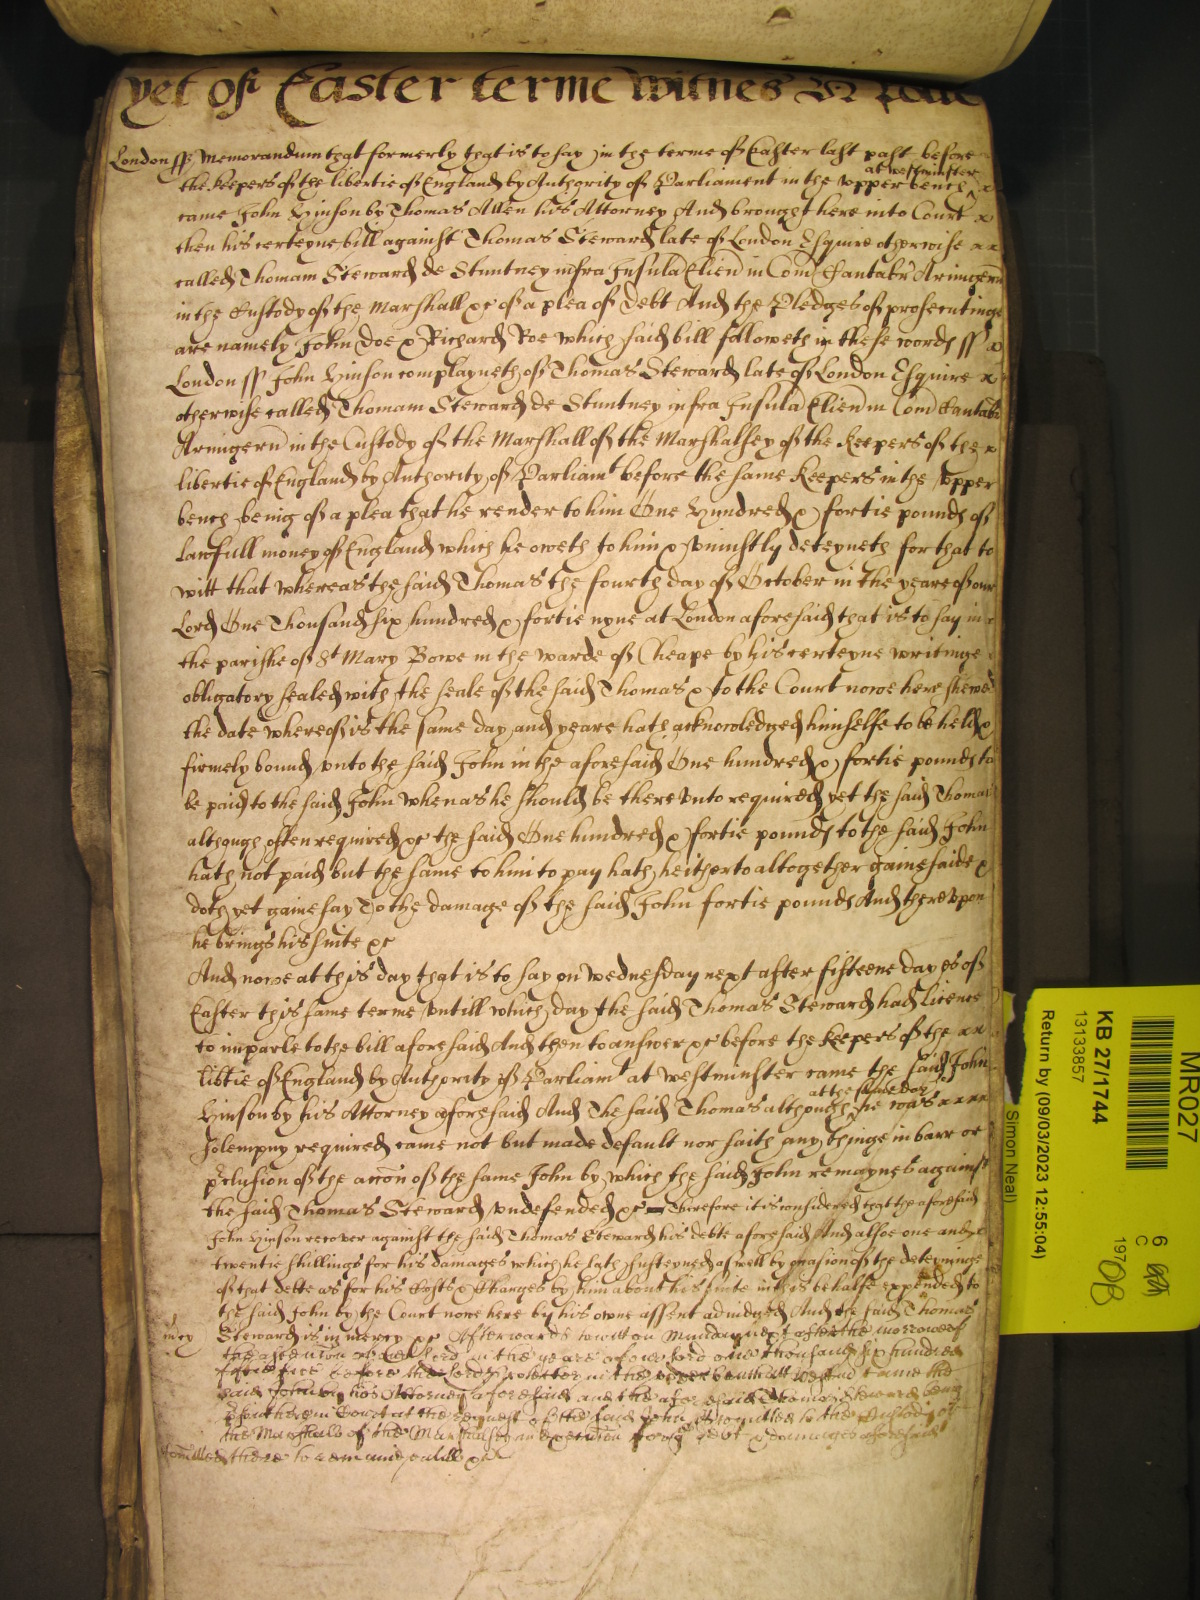 yet of Easter terme witnes R
London ss Memorandum that formerly that is to say in the terme of Easter last past before
at westminster
the keepers of the libertie of England by Authority of Parliament in the upper bench x
came John Hinson by Thomas Allen his Attorney And brought here into Court x
then his certeyne bill against Thomas Steward late of London Esquire otherwise x x
called Thomam Steward de Stuntney infra Insula Elien in Com Cantabr Armigerum
in the Custody of the Marshall &c of a plea of debt And the Pledges of prosecutinge
are namely John Doe & Richard Roe which said bill followeth in these words ss x
London ss John Hinson complayneth of Thomas Steward late of London Esquire x
otherwise called Thomam Steward de Stuntney infra Insula Elien in Com Cantabr
Armigerum in the Custody of the Marshall of the Marshalsey of the Keepers of the x
libertie of England by Authority of Parliamt before the same Keepers in the upper
bench being of a plea that he render to him One Hundred & fortie pounds of
Lawfull money of England which he oweth to him & uniustly deteyneth for that to
witt that whereas the said Thomas the fourth day of October in the yeare of our
Lord One Thousand six hundred & fortie nyne at London aforesaid that is to say in
the parishe of St Mary Bowe in the warde of Cheape by his certeyne writinge
obligatory sealed with the seale of the said Thomas & to the Court nowe here shewed
the date whereof is the same day and yeare hath acknowledged himselfe to be held &
firmely bound unto the said John in the aforesaid One hundred & fortie pounds to
be paid to the said John whenas he should be thereunto required yet the said Thomas
although often required &c the said One hundred & fortie pounds to the said John
hath not paid but the same to him to pay hath heitherto altogether gainesaide &
doth yet gainesay To the damage of the said John fortie pounds And thereupon
he brings his suite &c
And nowe at this day that is to say on wednesday next after fifteene dayes of
Easter this same terme untill which day the said Thomas Steward had licence
to imparle to the bill aforesaid And then to answer &c before the Keepers of the x x
libtie of England by Authority of Parliamt at westminster came the said John
at the same day
Hinson by his Attorney aforesaid And The said Thomas although he was x x x x
solempny required came not but made default nor saith any thinge in barr or
preclusion of the accon of the same John by which the said John remaynes against
the said Thomas Steward undefended &c Therefore it is considered that the aforesaid
John Hinson recover against the said Thomas Steward his debte aforesaid And alsoe one and
twentie shillings for his damages which he hath susteyned aswell by occasion of the deteyninge
of that debte as for his Costs & Charges by him about his suite in this behalfe expended to
the said John by the Court nowe here by his owne assent adiudged And the said Thomas
mcy Steward is in mercy &c Afterwards to witt on Munday next after the morrowe of
the Ascention of our Lord in the yeare of our Lord one thousand six hundred
fiftie five before the Lord Protector in the upper bench att Westmr came the
said John by his Attorney aforesaid and the aforesaid Thomas Steward being
present here in Court at the request of the said John is comitted to the Custody of
the Marshall of the Marshalsey in execution for the debt & damages aforesaid
comitted there to remaine untill &c
MR027
KB 27/1744
13133857
Return by (09/03/2023 12:55:04)
Simon Neal)
6
C
197